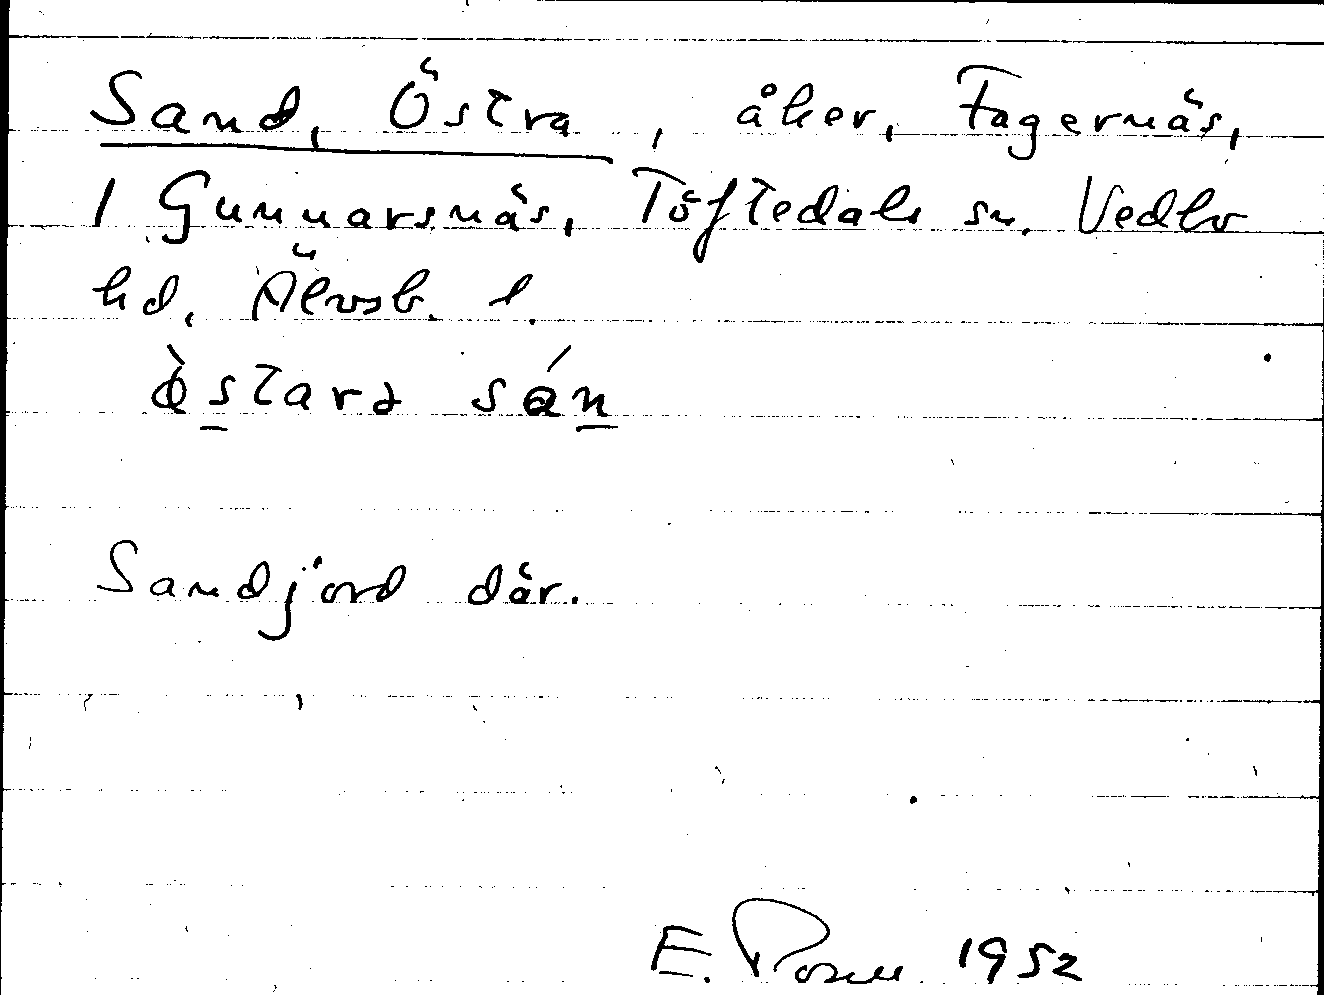 Sand, Östra, åker, Fagernäs,
1 Gunnarsnäs, Töftedals sn. Vedbo
hd, Älvsb. l.
Sandjord där.
E. 1952